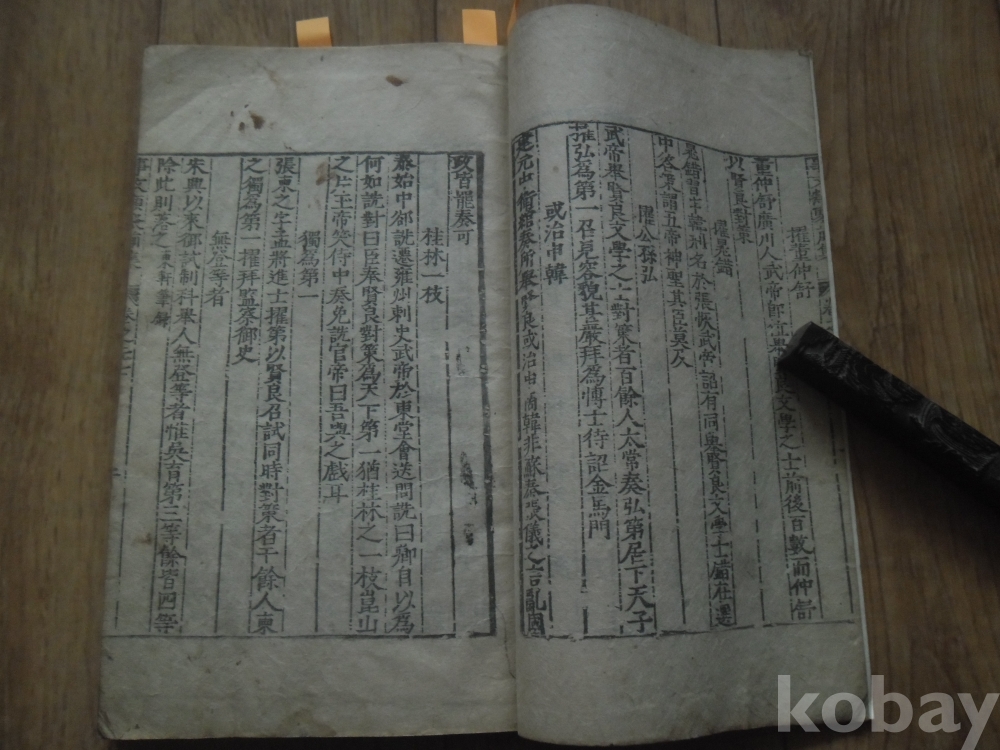 擢董仲舒
董仲舒廣川人武帝即位舉賢良文學之士前後百數而仲舒
以賢良對策
擢晁錯
晁錯習字韓刑名於張恢武帝詔有司舉賢良文學士錯在選
中又策謂五帝神聖其臣莫及
擢公孫弘
武帝舉賢良文學之士對策者百餘人太常奏弘第居下天子
擢弘為第一召見容貌甚嚴拜為博士待詔金馬門
或治申韓
建元中衛綰奏所舉賢良或治申商韓非蘇秦張儀之言亂國
政皆罷奏可
桂林一枝
泰始中郤詵遷雍州刺史武帝於東堂會送問詵曰卿自以為
何如詵對曰臣奉賢良對策為天下第一猶桂林之一枝崑山
之片玉帝笑侍中奏免詵官帝曰吾與之戲耳
獨為第一
張柬之字孟將進士擢第以賢良召試同時對策者千餘人東
之獨為第一擢拜監察御史
無登等者
宋興以來御試制科舉人無登等者惟吳育第三等餘皆四等
除此則蔑之
kobay